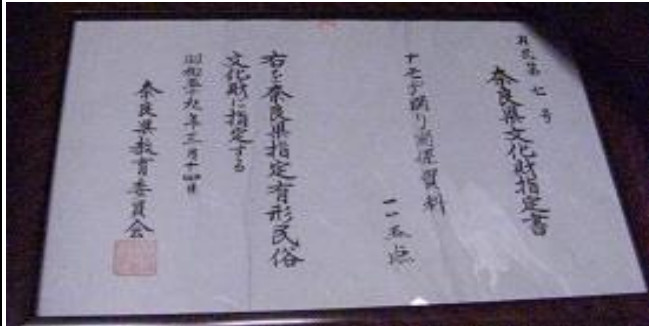 有民第七号
奈良県文化財指定書
ナモデ踊り関係資料
一一五点
右を奈良県指定有形民俗
文化財に指定する
昭和五十九年三月十四日
奈良県教育委員会